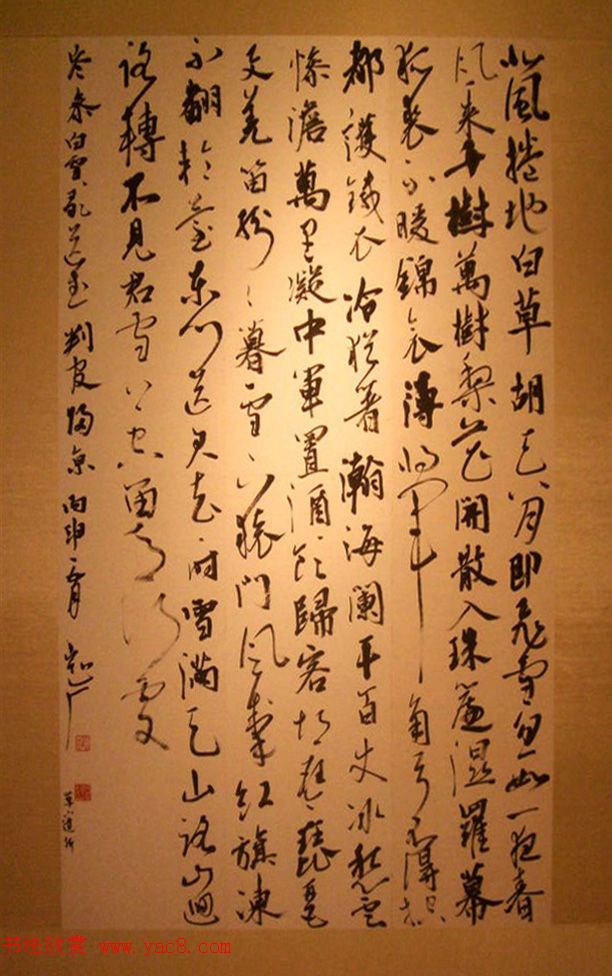 北風捲地白草胡天八月即飛雪忽如一夜春
風來千樹萬樹梨花開散入珠簾濕羅幕
狐裘不暖錦衾薄將軍角弓不得控
都護鐵衣冷猶著瀚海闌干百丈冰愁雲
慘澹萬里凝中軍置酒飲歸客胡琴琵琶
与羌笛紛〻暮雪下轅門風掣紅旗凍
不翻輪臺東門送君去〻時雪滿天山路山迴
路轉不見君雪上空留馬行處
岑參白雪歌送武判官歸京 丙申
书法欣赏 www.yac8.com